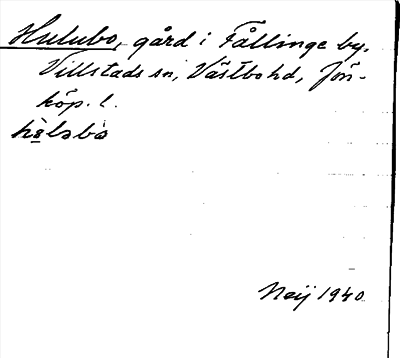 Hulubo, gård i Fållinge by.
Villstads sn, Västbo hd, Jön-
köp. l.
hòləbò
Neij 1940